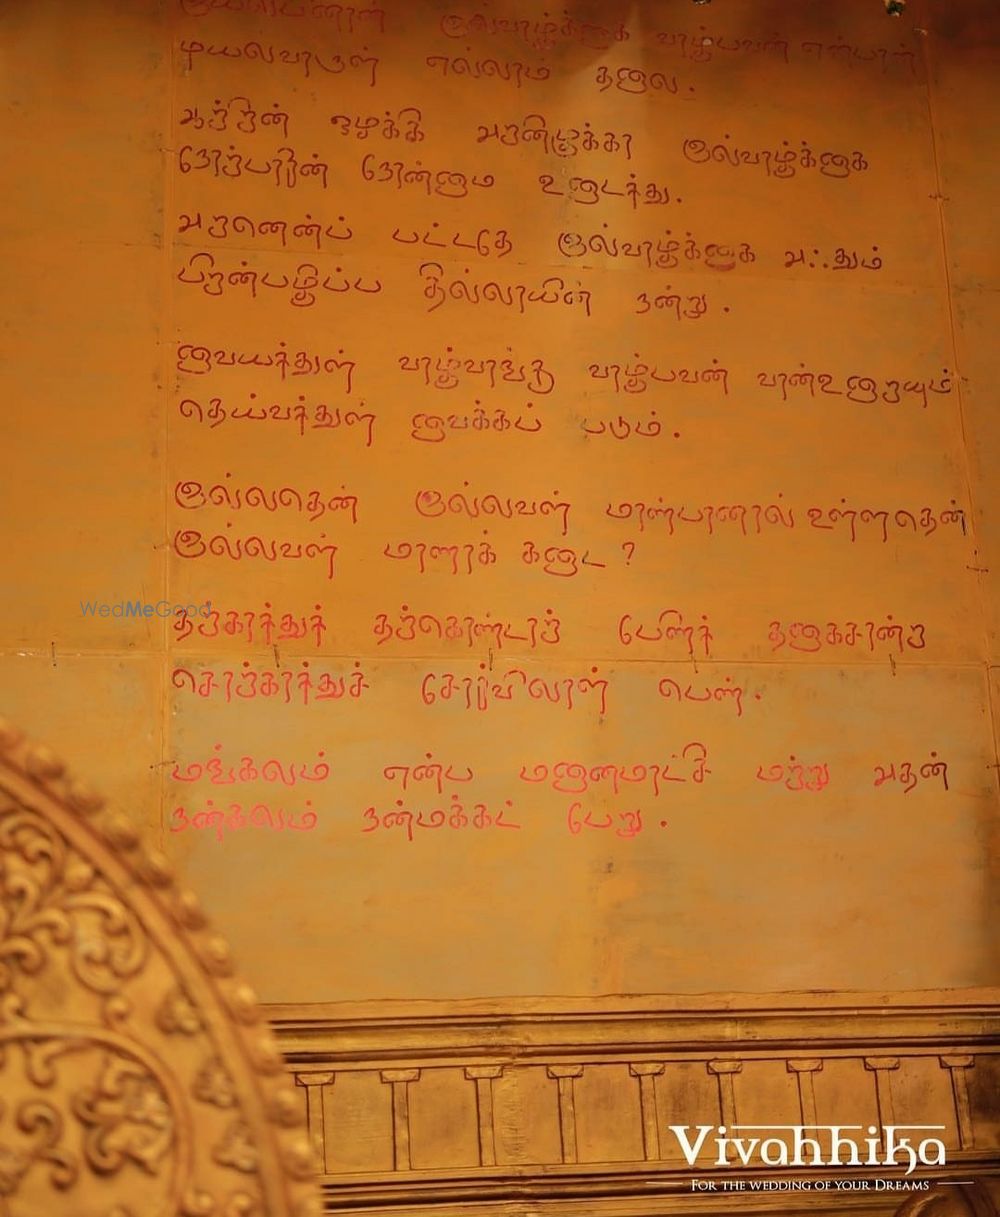 இயல்பினான் இல்வாழ்க்கை வாழ்பவன் என்பான்
முயல்வாருள் எல்லாம் தலை.
ஆற்றின் ஒழுக்கி அறனிழுக்கா இல்வாழ்க்கை
நோற்பாரின் நோன்மை உடைத்து.
அறனெனப் பட்டதே இல்வாழ்க்கை அஃதும்
பிறன்பழிப்ப தில்லாயின் நன்று.
வையத்துள் வாழ்வாங்கு வாழ்பவன் வான்உறையும்
தெய்வத்துள் வைக்கப் படும்.
இல்லதென் இல்லவள் மாண்பானால் உள்ளதென்
இல்லவள் மாணாக் கடை?
தற்காத்துத் தற்கொண்டாற் பேணித் தகைசான்ற
சொற்காத்துச் சோர்விலாள் பெண்.
WedMeGood
மங்கலம் என்ப மனைமாட்சி மற்று அதன்
நன்கலம் நன்மக்கட் பேறு.
Vivahhika
FOR THE WEDDING OF YOUR DREAMS